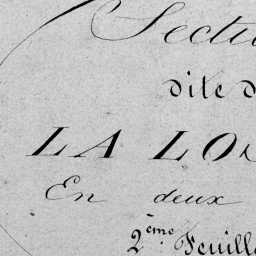 Section
dite d
LA LO
En deux
2ème Feuille